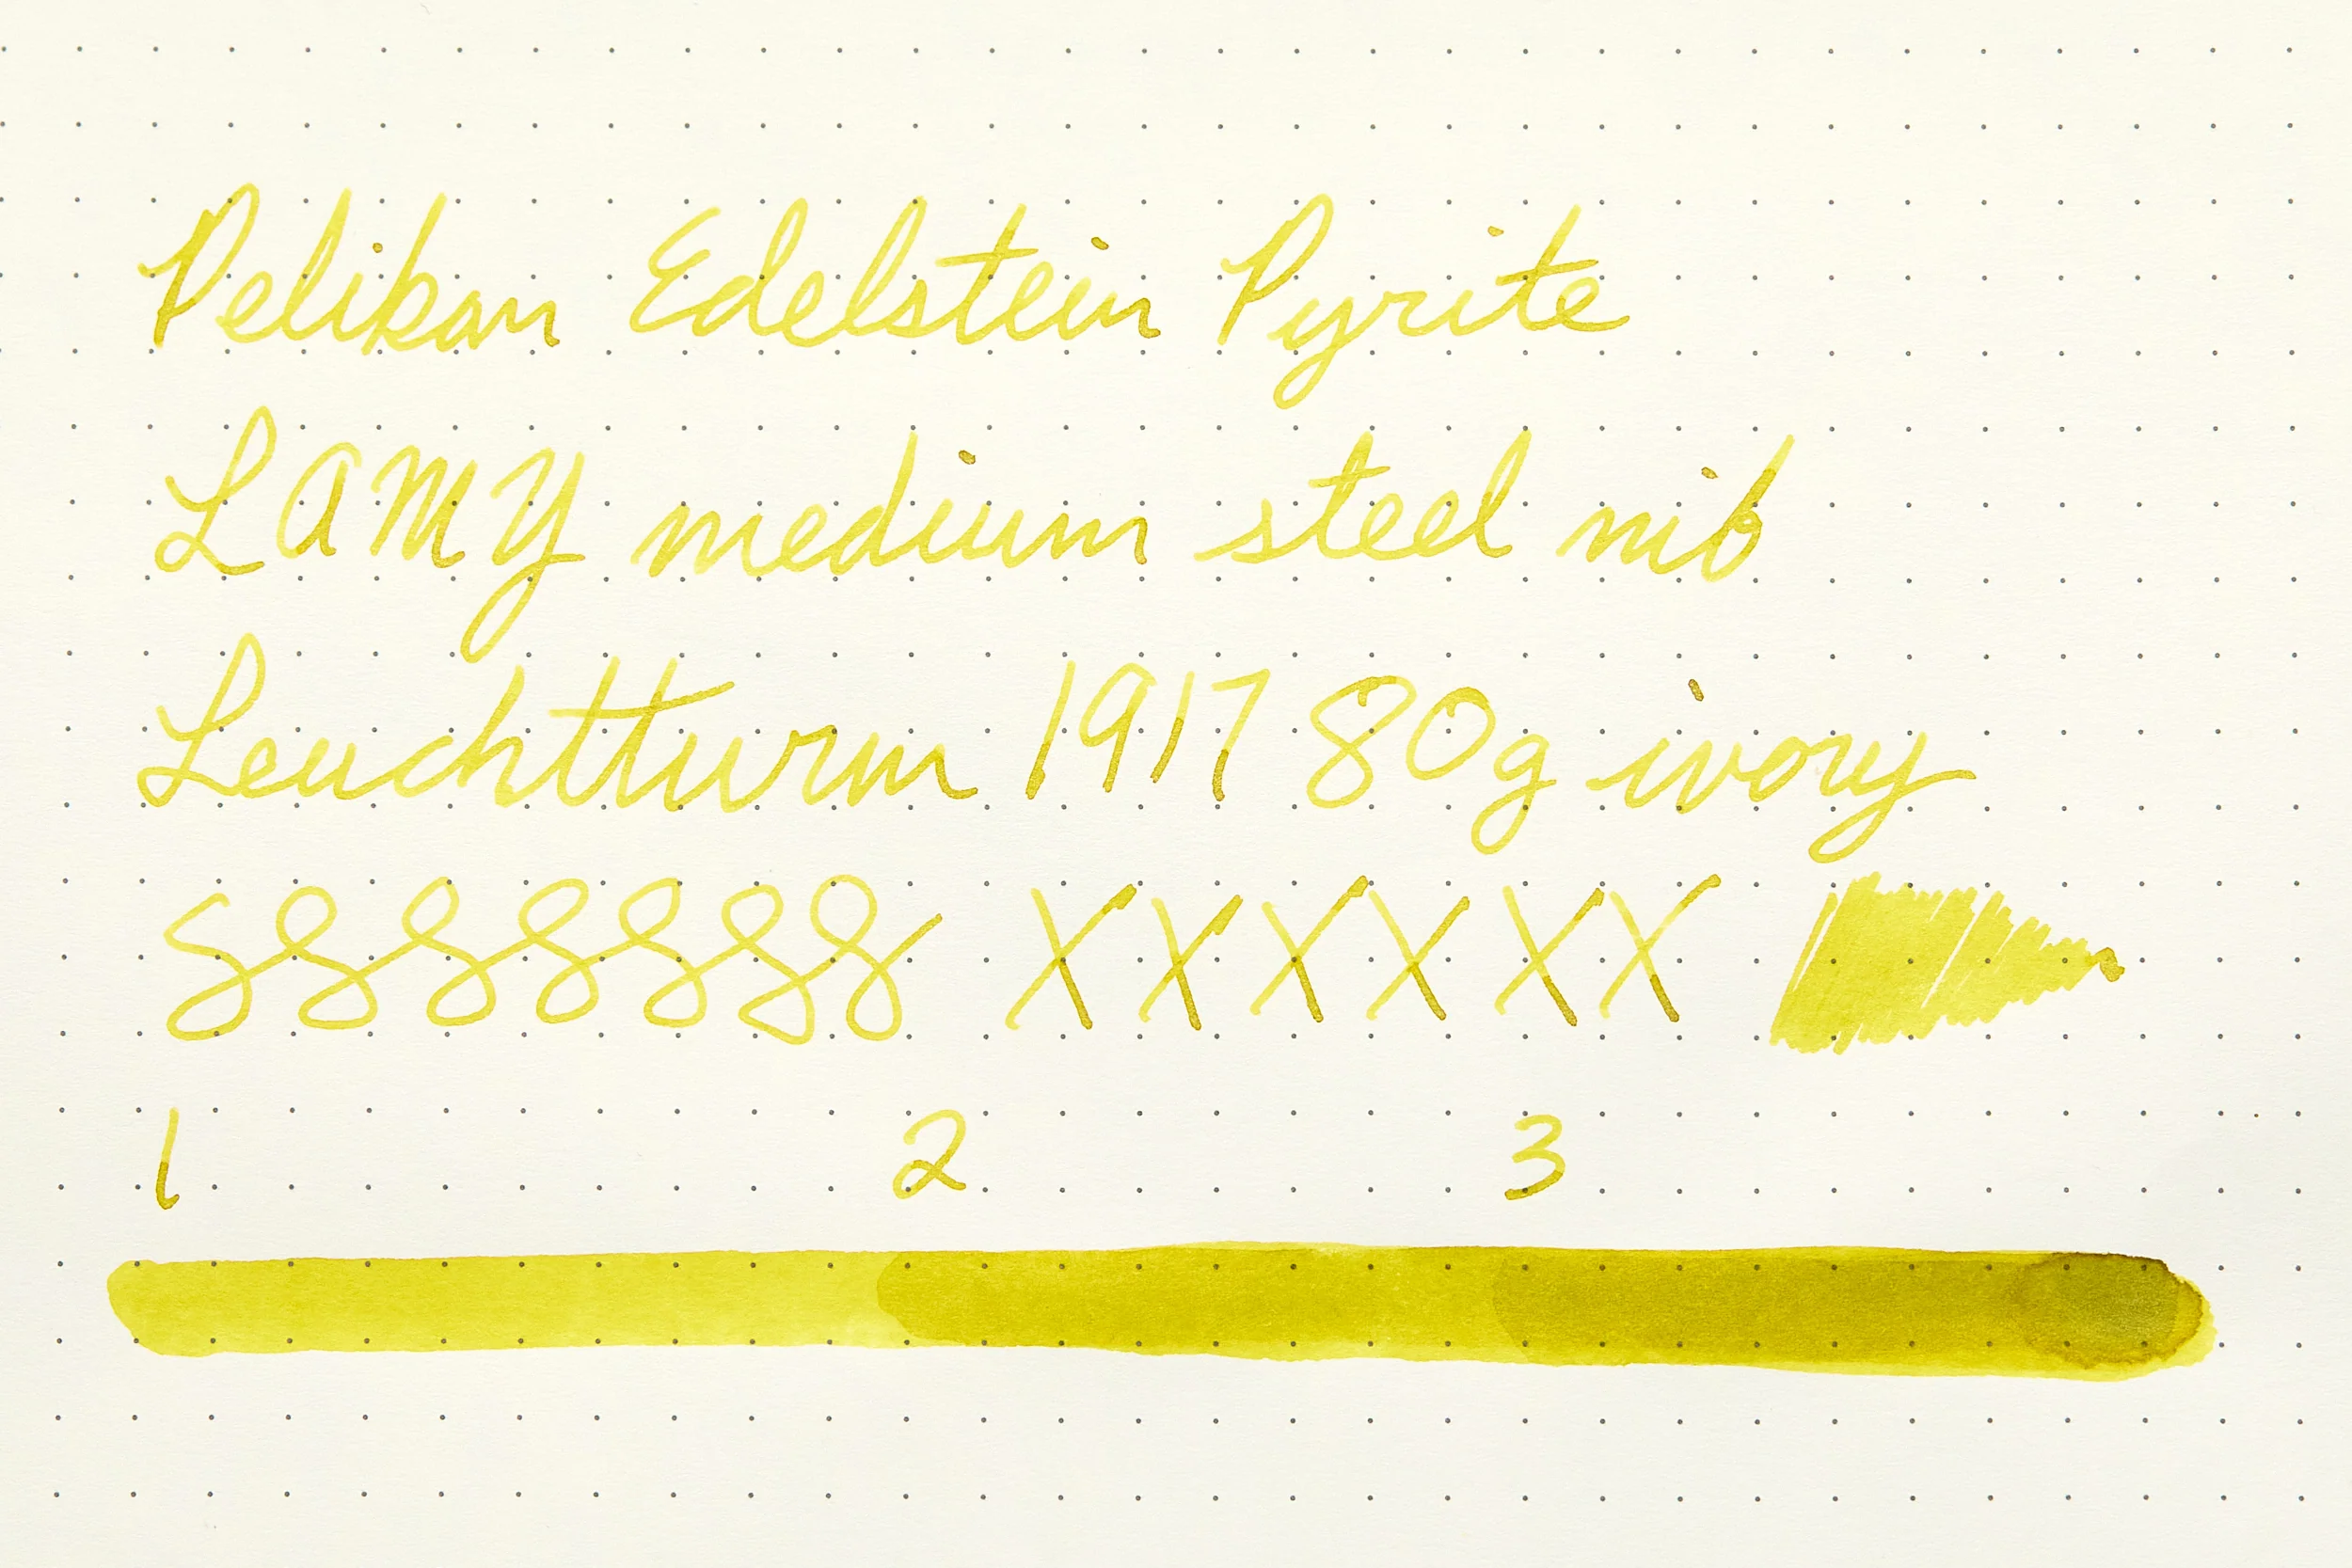 Pelikan Edelstein Pyrite
LAMY medium steel nib
Leuchtturm 1917 80g ivory
XXXXXX
1 2 3